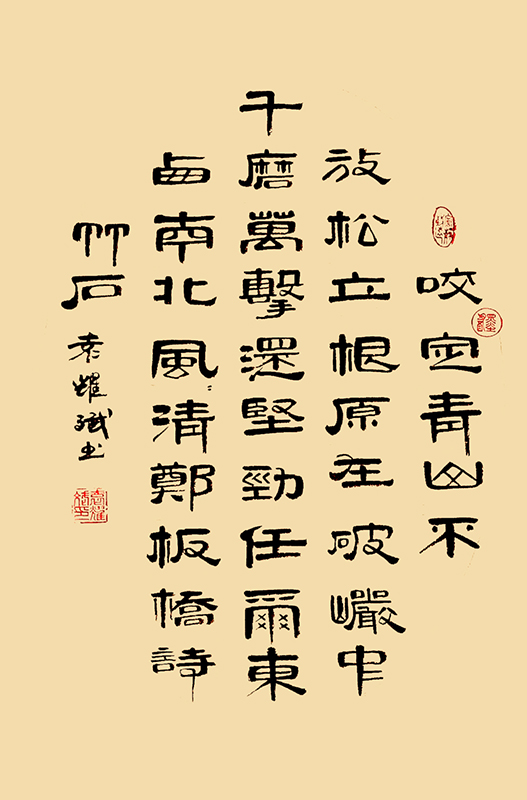 咬定青山不
放松立根原在破巖中
千磨萬擊還堅勁任爾東
西南北風清鄭板橋詩
竹石 袁耀书